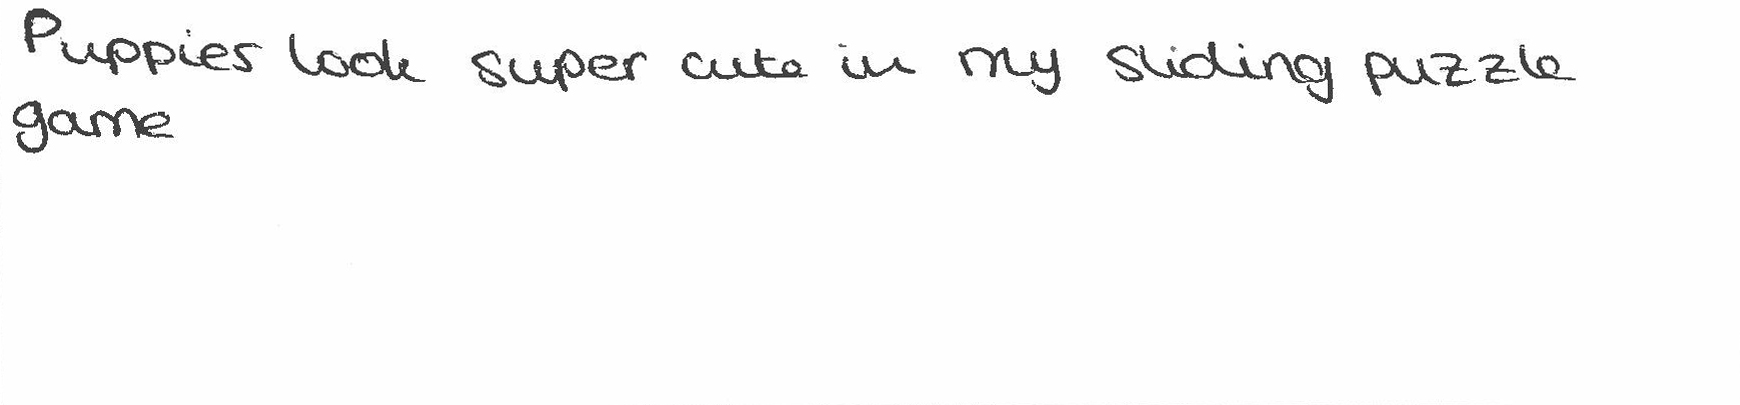 Puppies look super cute in my sliding puzzle
game